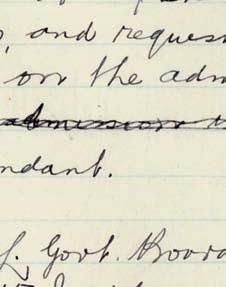 , and reques
on the adm
admission
ndant.
f. Govt. Board